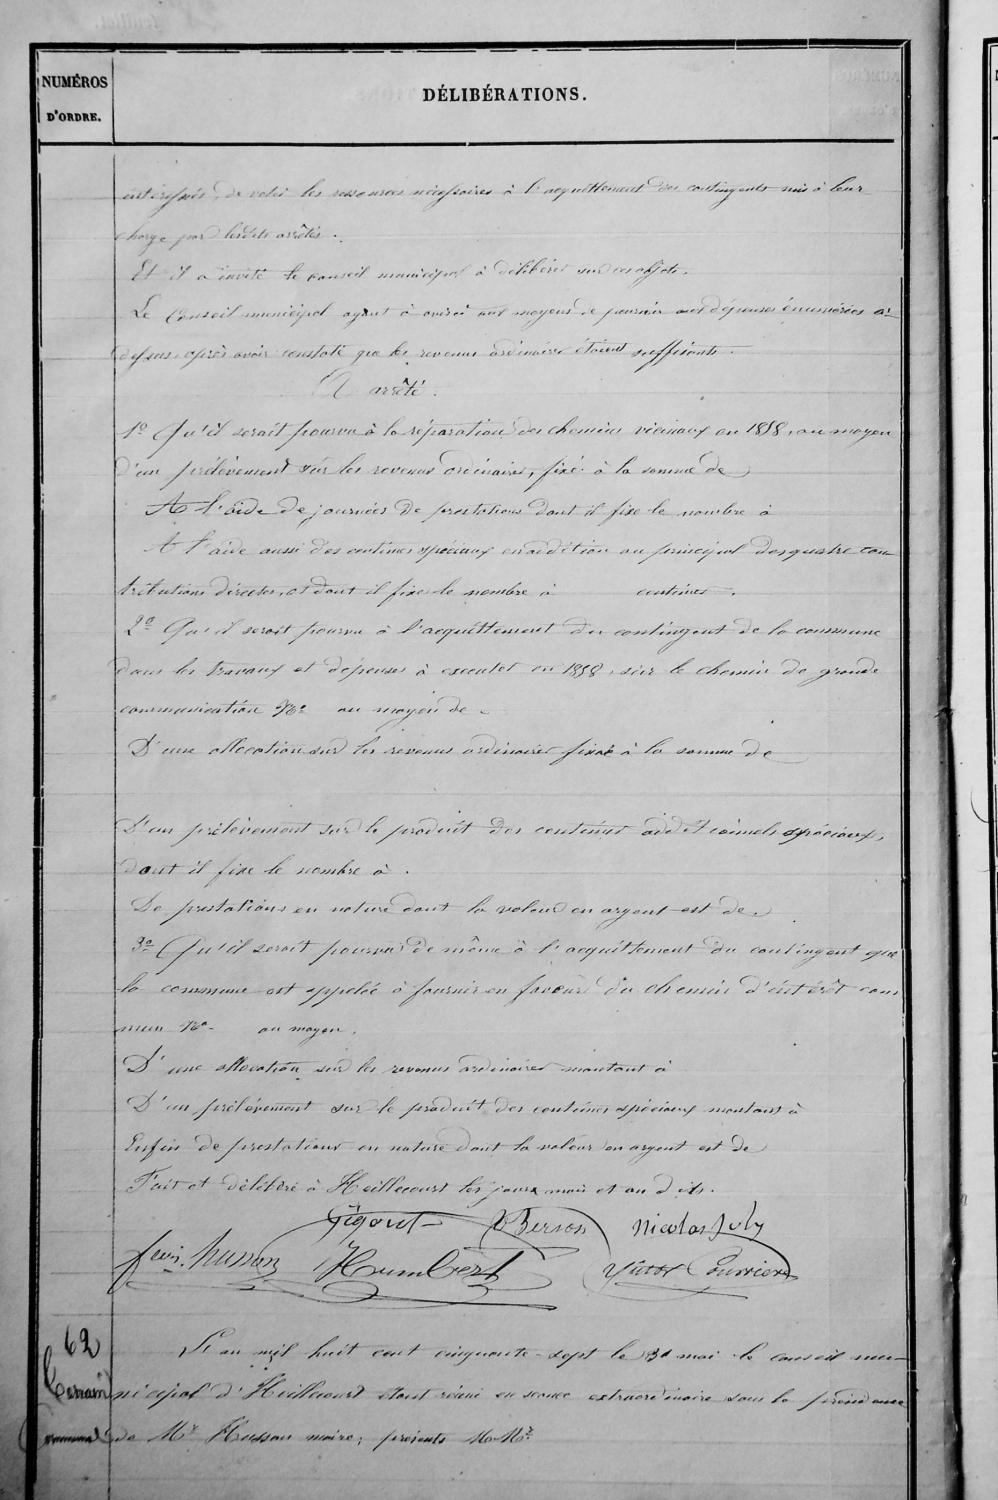 NUMÉROS
D'ORDRE.
DÉLIBÉRATIONS.
intéressés, de voter les ressources nécessaires à l'acquittement des contingents mis à leur
charge par lesdits arrêtés.
Et il a invité le conseil municipal à délibérer sur ces objets.
Le Conseil municipal ayant à aviser aux moyens de pourvoir aux dépenses énumérées ci-
dessus, après avoir constaté que les revenus ordinaires étaient suffisants.
A arrêté.
1º Qu'il serait pourvu à la réparation des chemins vicinaux en 1858, au moyen
d'un prélèvement sur les revenus ordinaires, fixé à la somme de
A l'aide de journées de prestations dont il fixe le nombre à
A l'aide aussi des centimes spéciaux en addition au principal des quatre con-
tributions directes, et dont il fixe le nombre à centimes.
2º Qu'il serait pourvu à l'acquittement du contingent de la commune
dans les travaux et dépenses à executer en 1858, sur le chemin de grande
communication Nº au moyen de
D'une allocation sur les revenus ordinaires fixée à la somme de
D'un prélèvement sur le produit des centimes additionnels spéciaux,
dont il fixe le nombre à.
De prestations en nature dont la valeur en argent est de
3º Qu'il serait pourvu de même à l'acquittement du contingent que
la commune est appelée à fournir en faveur du chemin d'intérêt com
mun Nº au moyen.
D'une allocation sur les revenus ordinaires montant à
D'un prélèvement sur le produit des centimes spéciaux montant à
Enfin de prestations en nature dont la valeur en argent est de
Fait et délibéré à Heillecourt les jour, mois et an dits.
Gigout Berson Nicolas July
husson Humbert Courrier
62 L'an mil huit cent cinquante-sept le 31 mai le conseil mu-
Terrain nicipal d'Heillecourt étant réuni en séance extraordinaire sous la présidence
de Mr Husson maire; présents M.Mrs